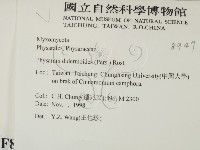 國立自然科學博物館
NATIONAL MUSEUM OF NATURAL SCIENCE
TAICHUNG, TAIWAN, R.O.CHINA
Myxomycota
Physarales, Physaraceae
Physarum didermoides (Pers.) Rost.
Loc.: Taiwan: Taichung, Chunghsing University(中興大學)
on bark of Cinnamomum camphora.
Col.: C. H. Chung M 2300
Date: Nov. , 1998
Det.: Y.Z. Wang(王也珍)